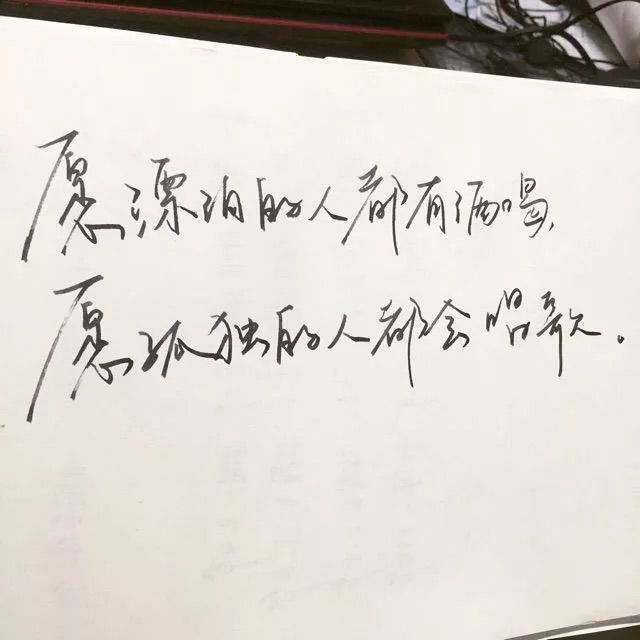 愿漂泊的人都有酒喝,
愿孤独的人都会唱歌。